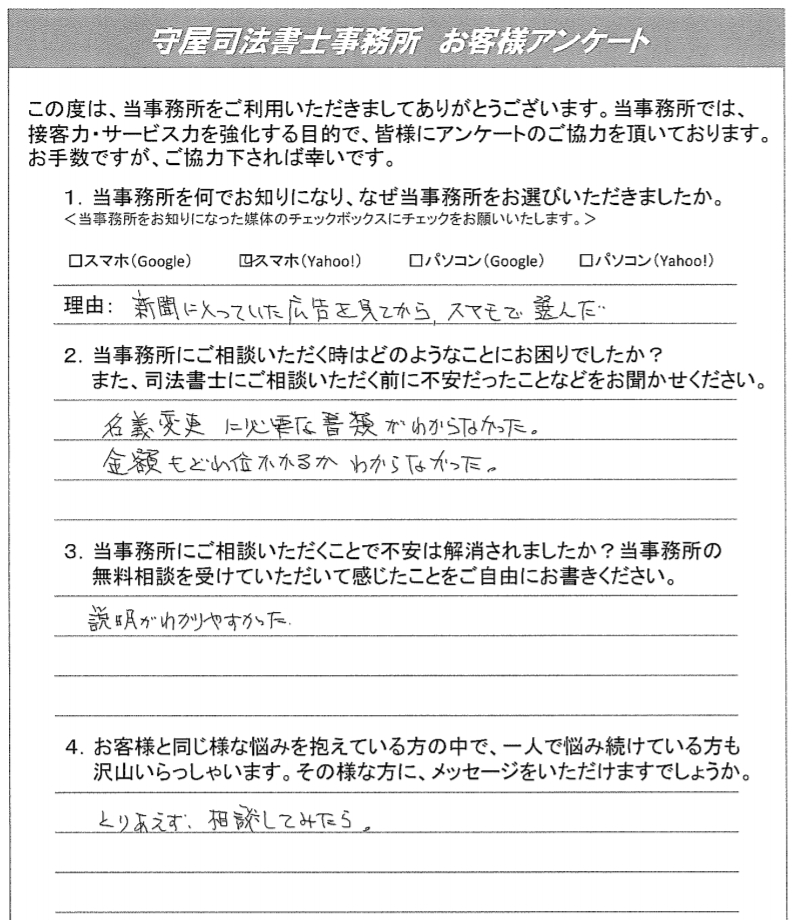 守屋司法書士事務所 お客様アンケート
この度は、当事務所をご利用いただきましてありがとうございます。当事務所では、
接客力・サービス力を強化する目的で、皆様にアンケートのご協力を頂いております。
お手数ですが、ご協力下されば幸いです。
１．当事務所を何でお知りになり、なぜ当事務所をお選びいただきましたか。
＜当事務所をお知りになった媒体のチェックボックスにチェックをお願いいたします。＞
□スマホ(Google) ☑スマホ(Yahoo!) □パソコン(Google) □パソコン(Yahoo!)
理由： 新聞に入っていた広告を見てから、スマホで選んだ
２．当事務所にご相談いただく時はどのようなことにお困りでしたか？
また、司法書士にご相談いただく前に不安だったことなどをお聞かせください。
名義変更に必要な書類がわからなかった。
金額もどれ位かかるかわからなかった。
３．当事務所にご相談いただくことで不安は解消されましたか？当事務所の
無料相談を受けていただいて感じたことをご自由にお書きください。
説明がわかりやすかった.
４．お客様と同じ様な悩みを抱えている方の中で、一人で悩み続けている方も
沢山いらっしゃいます。その様な方に、メッセージをいただけますでしょうか。
とりあえず、相談してみたら。